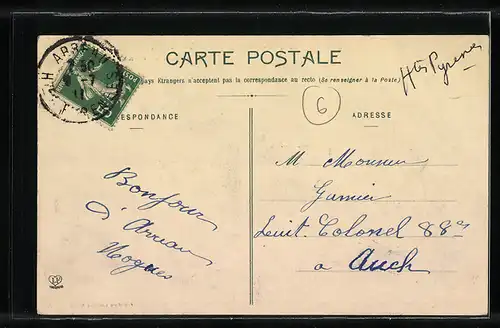 CARTE POSTALE
pays Etrangers n'acceptent pas la correspondance au recto (Se renseigner à la Poste)
Htes Pyrenees
6
RESPONDANCE
ADRESSE
Bonjour
d'Arreau
Nogues
M Monsieur
Garnier
Lieut. Colonel 88e
a Auch